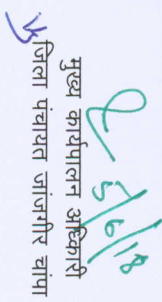 5/6/18
मुख्य कार्यपालन अधिकारी
जिला पंचायत जांजगीर चांपा